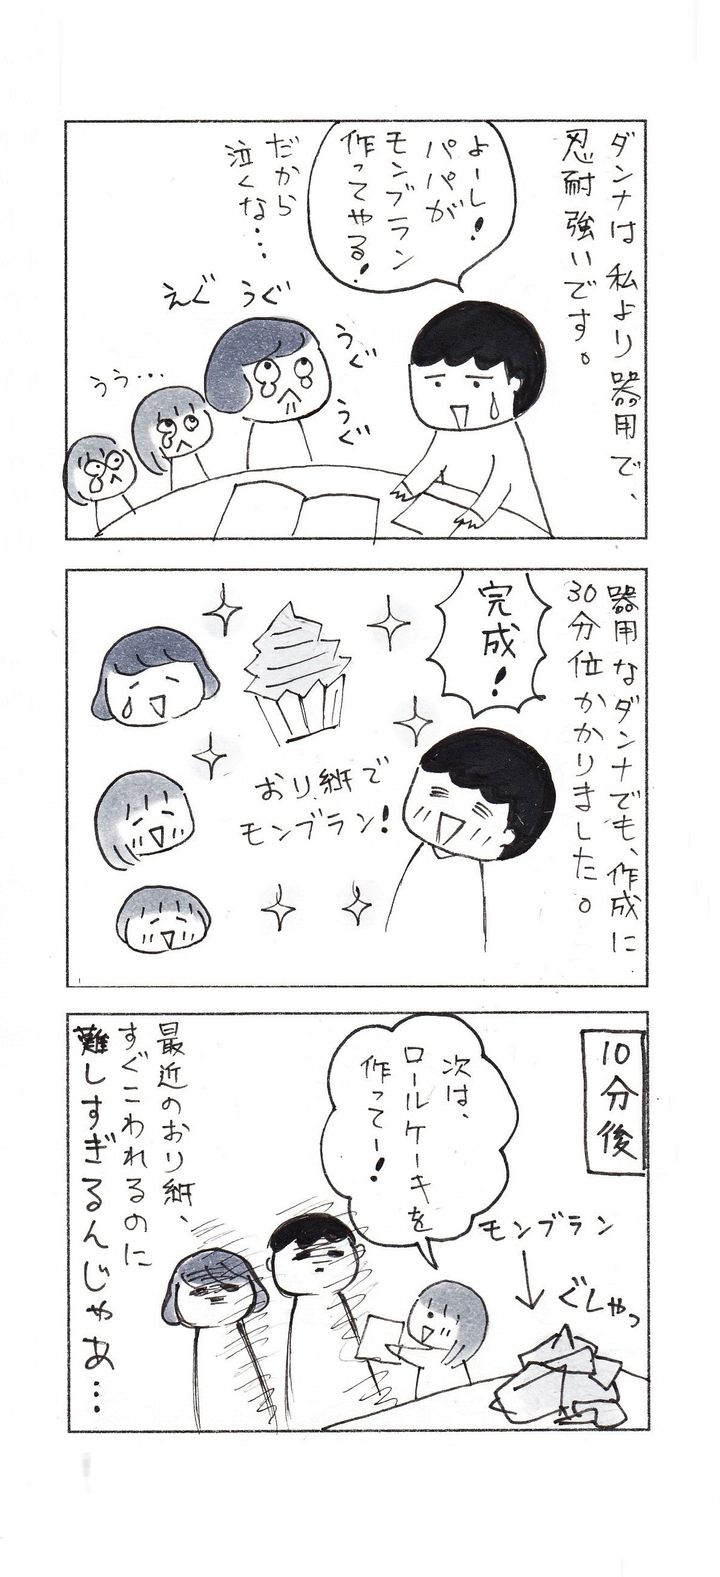 ダンナは私より器用で、
忍耐強いです。
よーし!
パパが
モンブラン
作ってやる!
だから
泣くな…
えぐ うぐ
うぐ
うぐ
うう…
器用なダンナでも、作成に
30分位かかりました。
完成!
おり紙で
モンブラン!
10分後
次は、
ロールケーキを
作ってー!
モンブラン
ぐしゃっ
最近のおり紙、
すぐこわれるのに
難しすぎるんじゃあ…